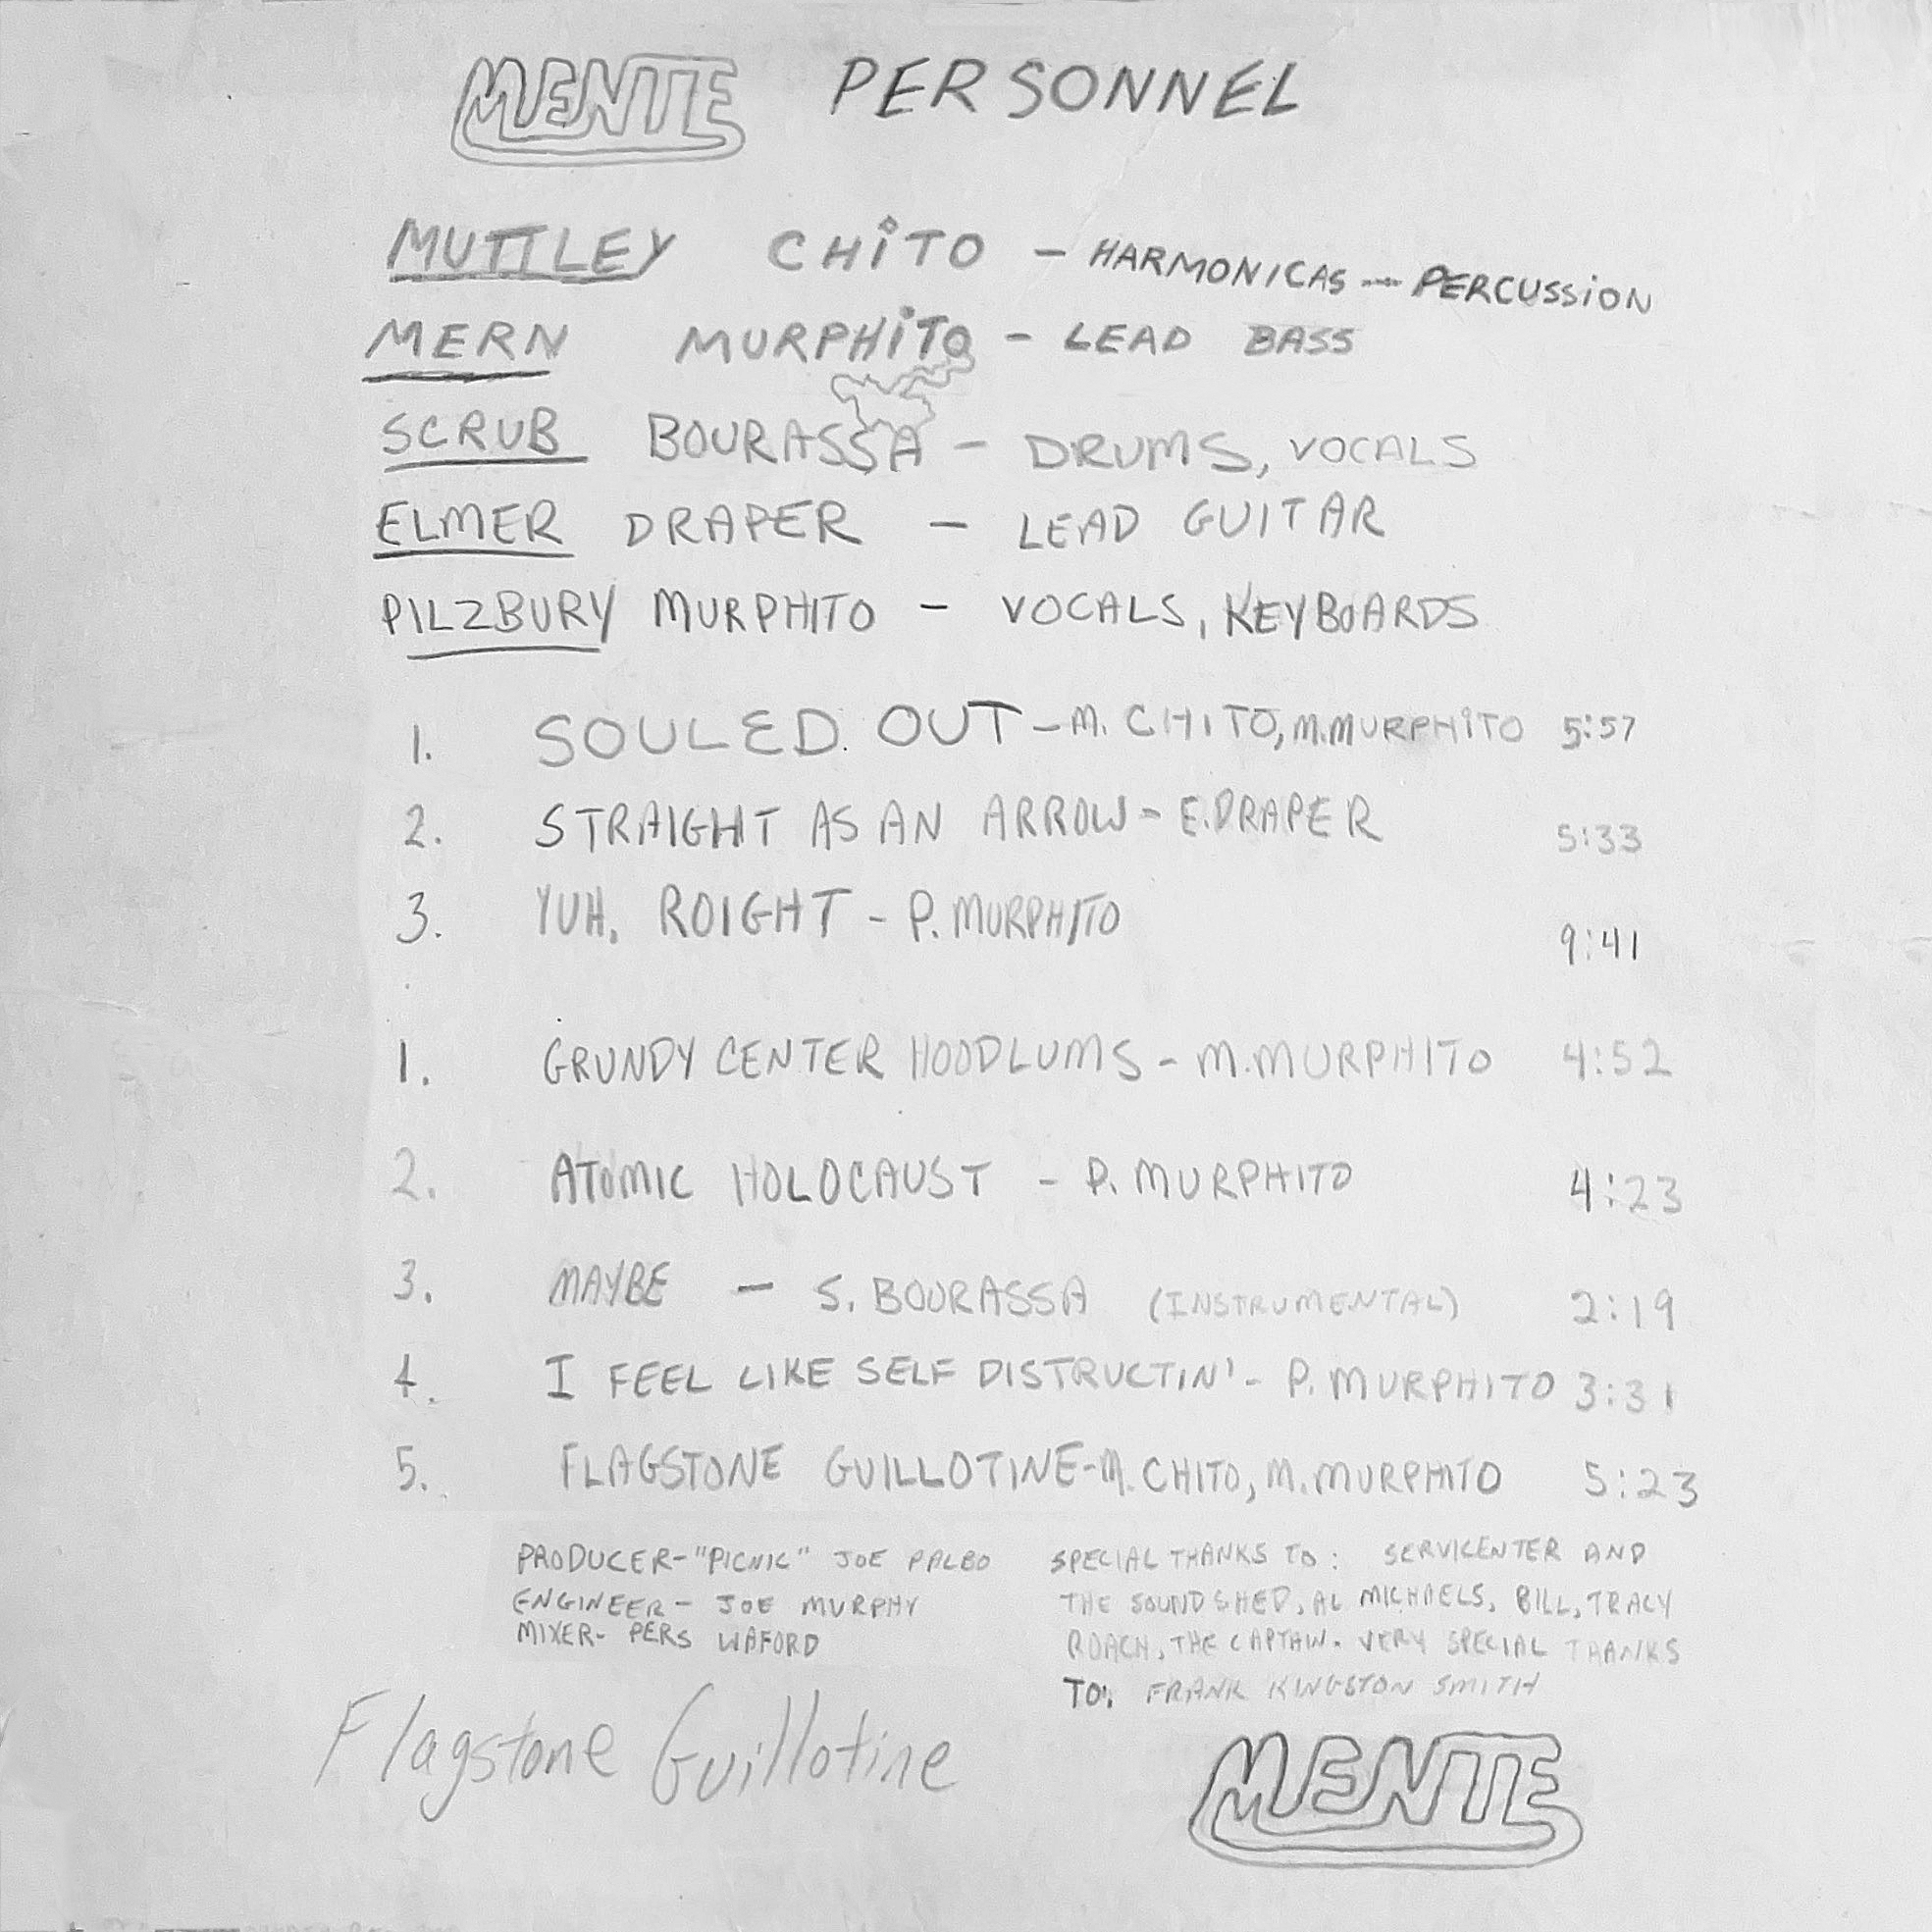 MENTE PERSONNEL
MUTTLEY CHiTO - HARMONICAS - PERCUSSiON
MERN MURPHiTO - LEAD BASS
SCRUB BOURASSA - DRUMS, VOCALS
ELMER DRAPER - LEAD GUITAR
PILZBURY MURPHITO - VOCALS, KEYBOARDS
1. SOULED OUT - M. CHITO, M.MURPHiTO 5:57
2. STRAIGHT AS AN ARROW - E.DRAPER 5:33
3. YUH, ROIGHT - P. MURPHITO 9:41
1. GRUNDY CENTER HOODLUMS - M.MURPHITO 4:52
2. ATOMIC HOLOCAUST - P. MURPHITO 4:23
3. MAYBE - S. BOURASSA (INSTRUMENTAL) 2:19
4. I FEEL LIKE SELF DISTRUCTIN' - P. MURPHITO 3:31
5. FLAGSTONE GUILLOTINE - M. CHITO, M. MURPHITO 5:23
PRODUCER - "PICNIC" JOE PALBO
ENGINEER - JOE MURPHY
MIXER - PERS WAFORD
SPECIAL THANKS TO: SERVICENTER AND
THE SOUND SHED, AL MICHAELS, BILL, TRACY
ROACH, THE CAPTAIN. VERY SPECIAL THANKS
TO: FRANK KINGSTON SMITH
Flagstone Guillotine
MENTE